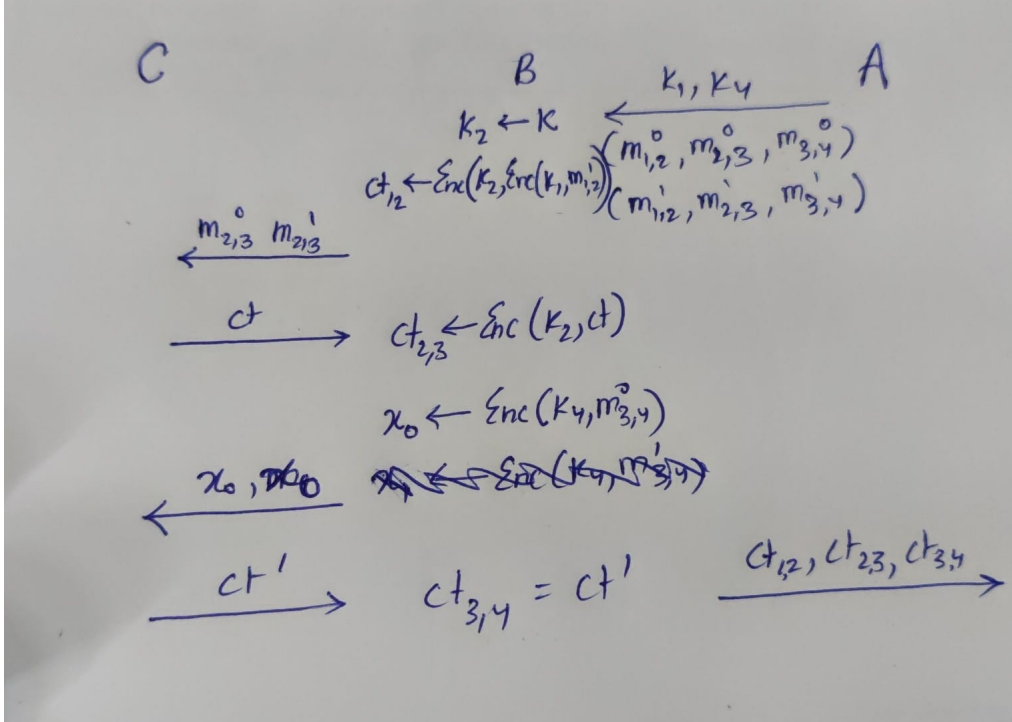 C B A
K₁, K₄
K₂ ← K
(m⁰₁,₂, m⁰₂,₃, m⁰₃,₄)
ct₁,₂ ← Enc(K₂, Enc(K₁, m¹₁,₂))
(m¹₁,₂, m¹₂,₃, m¹₃,₄)
m⁰₂,₃ m¹₂,₃
ct
ct₂,₃ ← Enc(K₂, ct)
x₀ ← Enc(K₄, m⁰₃,₄)
x₀, x₀
ct'
ct₃,₄ = ct'
ct₁,₂, ct₂,₃, ct₃,₄